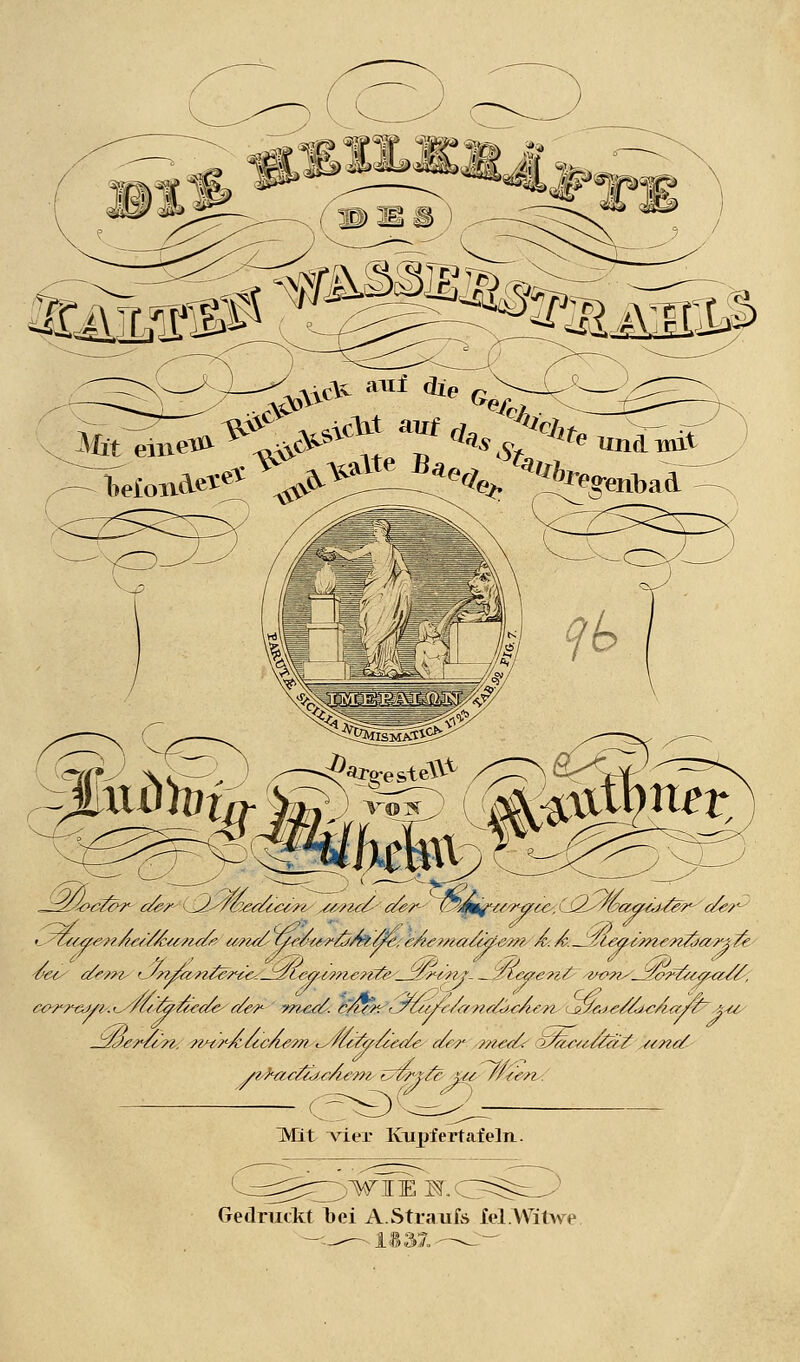 DIE HEILKRÄFTE
DES
KALTEN WASSERSTRAHLS
Mit einem Rückblick auf die Geſchichte und mit
beſonderer Rückſicht auf das Staubregenbad
und kalte Baeder.
96
IMEPAIΩN
PARUTÆ SICILIA NUMISMATICA 1723 TAB.92 FIG.7.
Dargestellt
VON
Ludwig Wilhelm Mauthner,
Doctor der Medicin und der Chirurgie, Magister der
Augenheilkunde und Geburtshilfe, ehemaligem k. k. Regimentsarzte
bei dem Infanterie-Regimente Prinz-Regent von Portugall,
corresp. Mitgliede der med. chir. Hufelandschen Gesellschaft zu
Berlin, wirklichem Mitgliede der med. Facultät und
practischem Arzte zu Wien.
Mit vier Kupfertafeln.
WIEN.
Gedruckt bei A.Strauſs ſel.Witwe
1837.